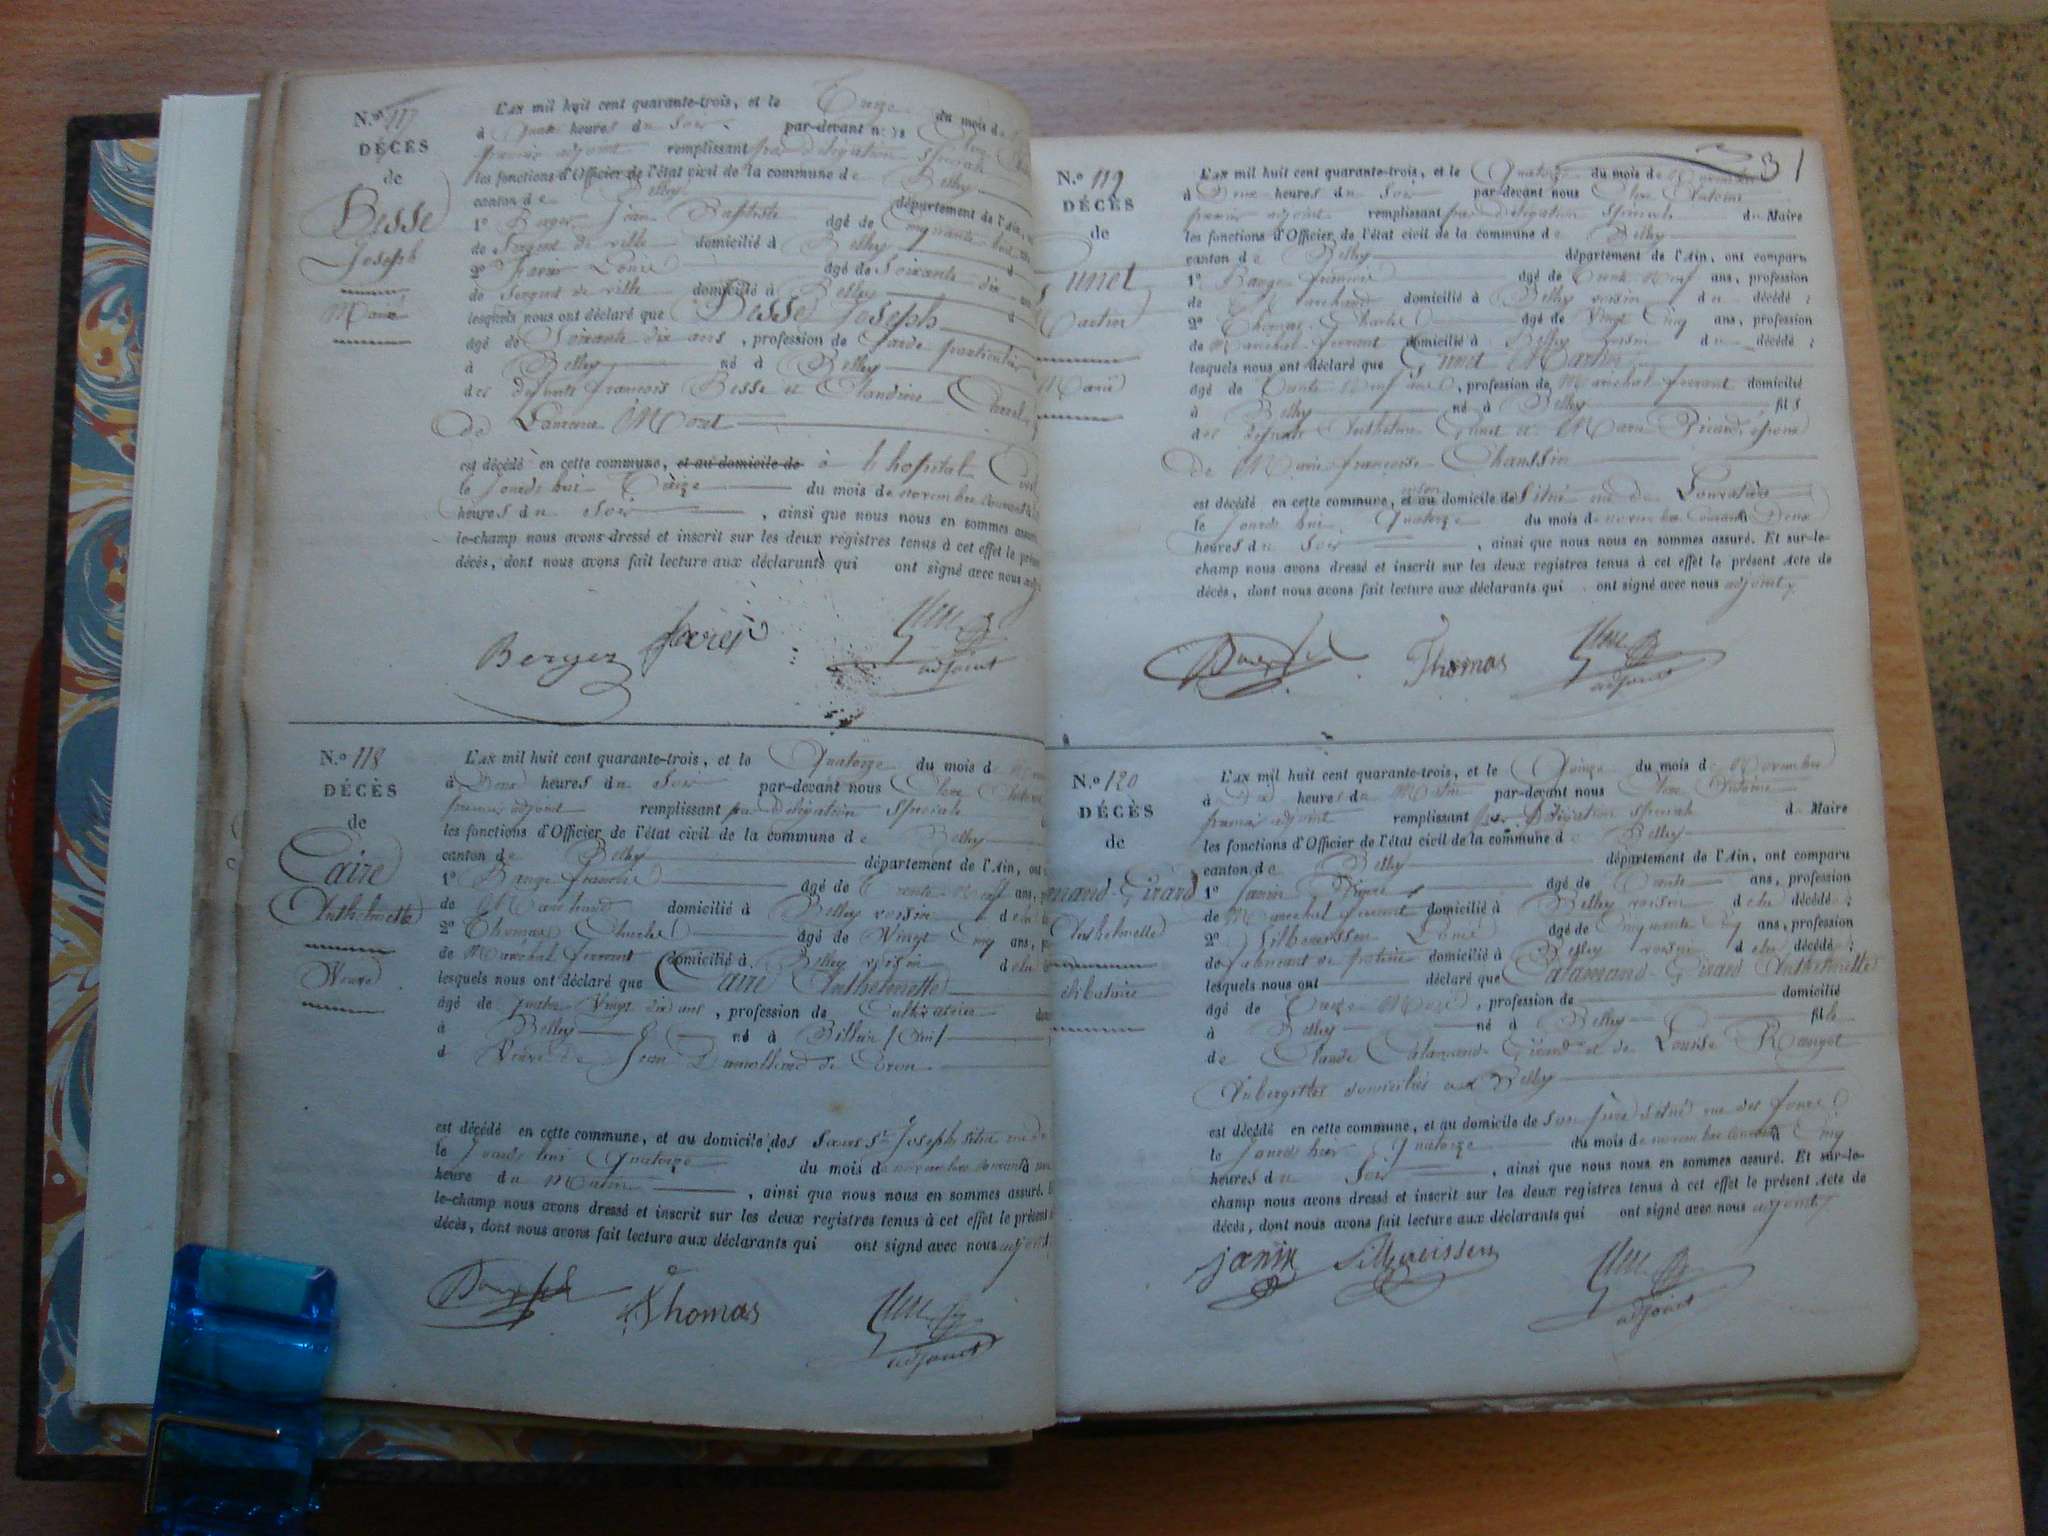 N.º 117
DÉCÈS
de
Besse
Joseph
Marié
L'an mil huit cent quarante-trois, et le Treize du mois d
à heures du Soir par-devant n
premier adjoint remplissant par délégation spéciale
les fonctions d'Officier de l'état civil de la commune de Belley
canton de Belley département de l'Ain,
1º Berger Jean Baptiste âgé de Cinquante
de Sergent de ville domicilié à Belley
2º Louis âgé de Soixante dix
de Sergent de ville domicilié à Belley
lesquels nous ont déclaré que Besse Joseph
âgé de Soixante dix ans, profession de Garde particulier
à Belley né à Belley
des défunts françois Besse et Claudine
De Mort
est décédé en cette commune, et au domicile de à l'hopital
le jourdhui Treize du mois de novembre courant à
heures du Soir, ainsi que nous nous en sommes assuré
le-champ nous avons dressé et inscrit sur les deux registres tenus à cet effet le prés
décès, dont nous avons fait lecture aux déclarants qui ont signé avec nous adj
Berger
adjoint
N.º 118
DÉCÈS
de
Caire
Anthelmette
Veuve
L'an mil huit cent quarante-trois, et le Quatorze du mois d
à Deux heures du Soir par-devant nous Clerc Antoine
premier adjoint remplissant par Délégation Spéciale
les fonctions d'Officier de l'état civil de la commune de Belley
canton de Belley département de l'Ain, ont
1º françois âgé de Trente Neuf ans,
de Marchand domicilié à Belley voisin de la
2º Thomas Charles âgé de Vingt Cinq ans,
de Maréchal ferrant domicilié à Belley voisin de la
lesquels nous ont déclaré que Caire Anthelmette
âgé de quatre Vingt dix ans, profession de Cultivatrice
à Belley né à Billieu (Ain)
d Veuve de Jean
est décédé en cette commune, et au domicile des Sœurs St Joseph situé rue de
le Jourdhui Quatorze du mois de novembre courant à
heure du Matin, ainsi que nous nous en sommes assuré.
le-champ nous avons dressé et inscrit sur les deux registres tenus à cet effet le présent
décès, dont nous avons fait lecture aux déclarants qui ont signé avec nous adjoint
Thomas
adjoint
31
N.º 119
DÉCÈS
de
unet
Martin
Marié
L'an mil huit cent quarante-trois, et le Quatorze du mois de Novembre
à Deux heures du Soir par-devant nous Clerc Antoine
premier adjoint remplissant par Délégation Spéciale du Maire
les fonctions d'Officier de l'état civil de la commune de Belley
canton de Belley département de l'Ain, ont comparu
1º françois âgé de Trente Neuf ans, profession
de Marchand domicilié à Belley voisin du décédé ;
2º Thomas Charles âgé de Vingt Cinq ans, profession
de Maréchal ferrant domicilié à Belley voisin du décédé ;
lesquels nous ont déclaré que Martin
âgé de Trente Neuf ans, profession de Maréchal ferrant domicilié
à Belley né à Belley fils
des défunts Anthelme et Marie époux
De Marie françoise
est décédé en cette commune, et au domicile de Situé rue de
le Jourdhui Quatorze du mois de novembre Courant à Deux
heures du Soir, ainsi que nous nous en sommes assuré. Et sur-le-
champ nous avons dressé et inscrit sur les deux registres tenus à cet effet le présent Acte de
décès, dont nous avons fait lecture aux déclarants qui ont signé avec nous adjoint
Thomas
adjoint
N.º 120
DÉCÈS
de
mand-Girard
Anthelmette
célibataire
L'an mil huit cent quarante-trois, et le Quinze du mois de Novembre
à Dix heures du Matin par-devant nous Clerc Antoine
premier adjoint remplissant par Délégation spéciale du Maire
les fonctions d'Officier de l'état civil de la commune de Belley
canton de Belley département de l'Ain, ont comparu
1º Janin Pierre âgé de Trente ans, profession
de Maréchal ferrant domicilié à Belley voisin de la décédé ;
2º Louis âgé de Cinquante Cinq ans, profession
de fabricant de domicilié à Belley voisin de la décédé ;
lesquels nous ont déclaré que Calamand-Girard Anthelmette
âgé de Mois, profession de domicilié
à Belley né à Belley fille
de Claude Calamand Girard et de Louise
Aubergistes domiciliés à Belley
est décédé en cette commune, et au domicile de son père situé rue des
le Jourd hier Quatorze du mois de novembre courant à Cinq
heures du Soir, ainsi que nous nous en sommes assuré. Et sur-le-
champ nous avons dressé et inscrit sur les deux registres tenus à cet effet le présent Acte de
décès, dont nous avons fait lecture aux déclarants qui ont signé avec nous adjoint
janin
adjoint